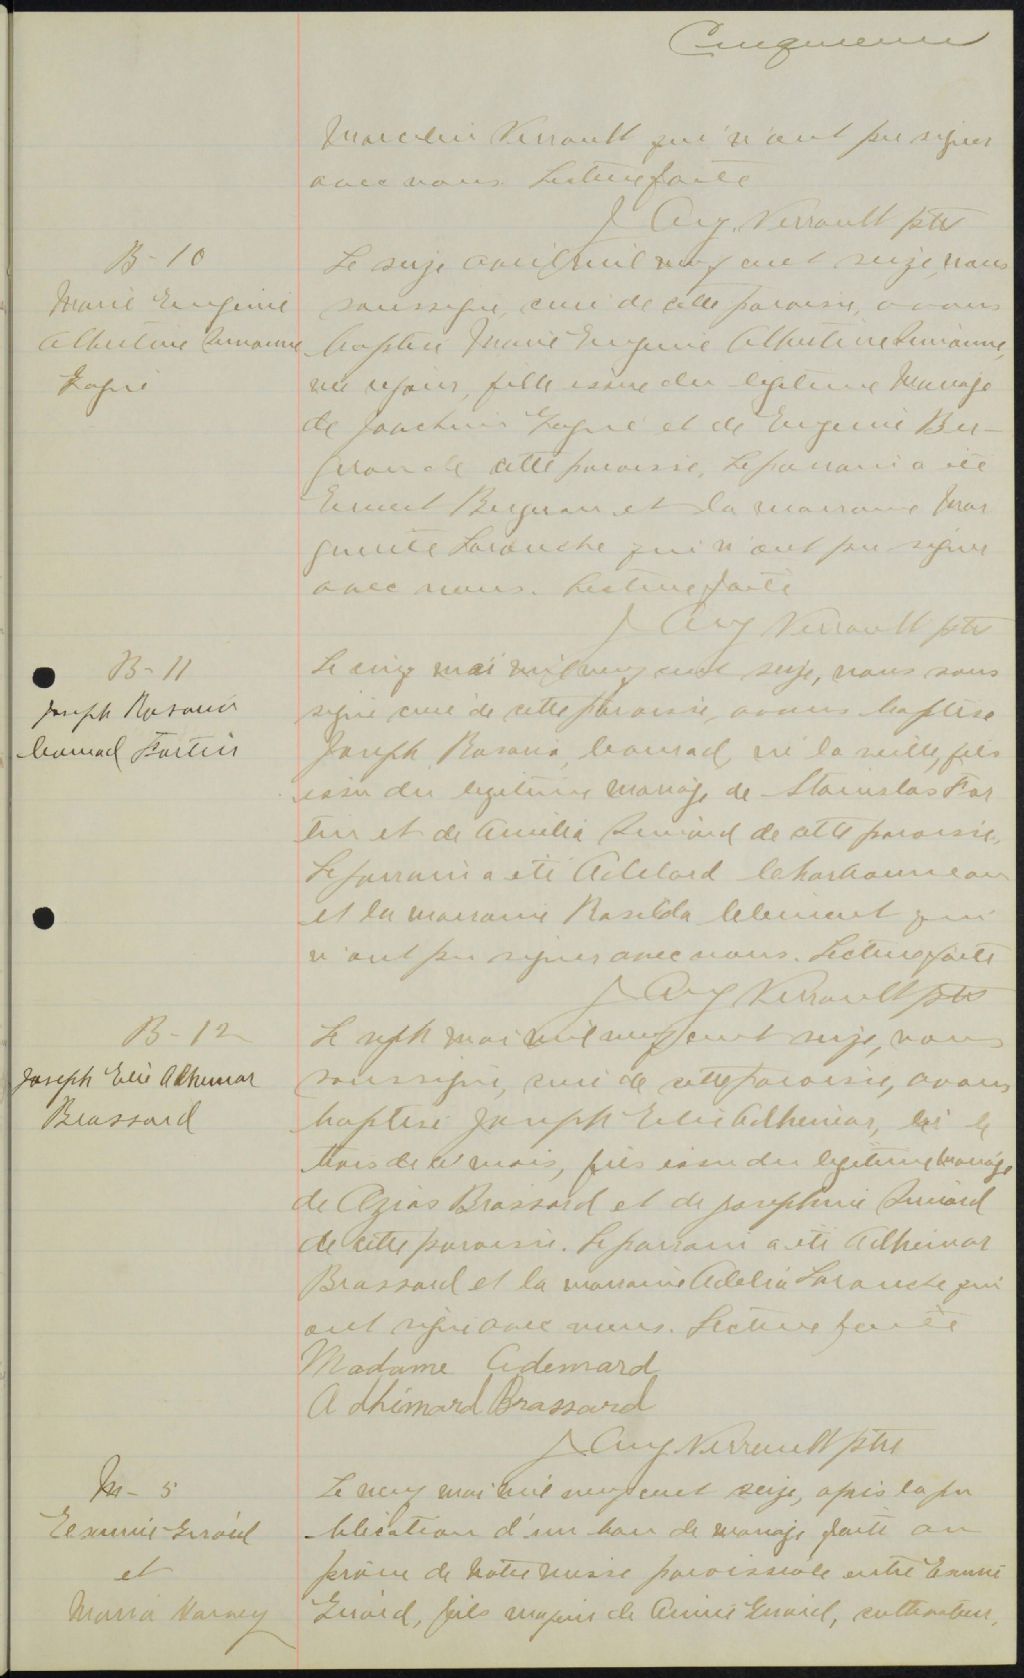 Cinquieme
Marcelin Verrault qui n'ont pu signer
avec nous. Lecture faite
J Aug. Verrault ptre
B-10
Marie Eugenie
Albertine Simonne
Gagné
Le seize avril mil neuf cent seize, nous
soussigné, curé de cette paroisse, avons
baptisé Marie Eugenie Albertine Simonne,
née ce jour, fille issue du legitime Mariage
de Joachim Gagné et de Eugenie Ber-
geron de cette paroisse. Le parrain a été
Ernest Bergeron et la marraine Mar
guerite Larouche qui n'ont pu signer
avec nous. Lecture faite
J Aug Verrault ptre
B-11
Joseph Rosario
Conrad Fortin
Le cinq mai mil neuf cent seize, nous sous
signé curé de cette paroisse, avons baptisé
Joseph, Rosario, Conrad, né la veille, fils
issu du legitime mariage de Stanislas For
tin et de Amelia Simard de cette paroisse.
Le parrain a été Adelard Charbonneau
et la marraine Rosilda Clement qui
n'ont pu signer avec nous. Lecture faite
J Aug Verrault ptre
B-12
Joseph Elie Adhemar
Brassard
Le sept mai mil neuf cent seize, nous
soussigné, curé de cette paroisse, avons
baptisé Joseph Elie Adhemar, né le
trois de ce mois, fils issu du legitime mariage
de Azias Brassard et de Josephine Simard
de cette paroisse. Le parrain a été Adhemar
Brassard et la marraine Adelia Larouche qui
ont signé avec nous. Lecture faite
Madame Ademard
Adhémard Brassard
J. Aug. Verrault ptre
M- 5
Girard
et
Maria Harvey
Le neuf mai mil neuf cent seize, après la pu
blication d'un ban de mariage faite au
prône de notre messe paroissiale entre
Girard, fils majeur de Aimé Girard, cultivateur,